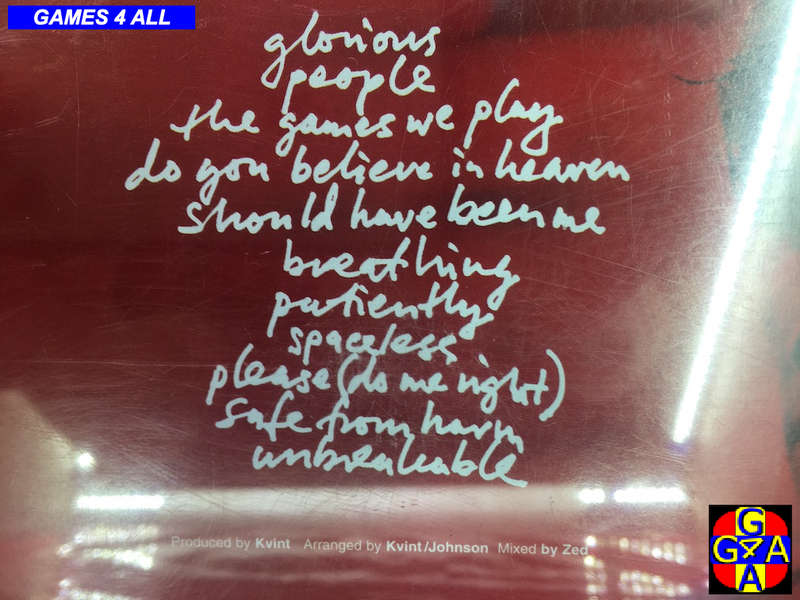 GAMES 4 ALL
glorious
people
the games we play
do you believe in heaven
should have been me
breathing
patiently
spaceless
please (do me right)
safe from harm
unbreakable
Produced by Kvint Arranged by Kvint/Johnson Mixed by Zed
G
G4A
A